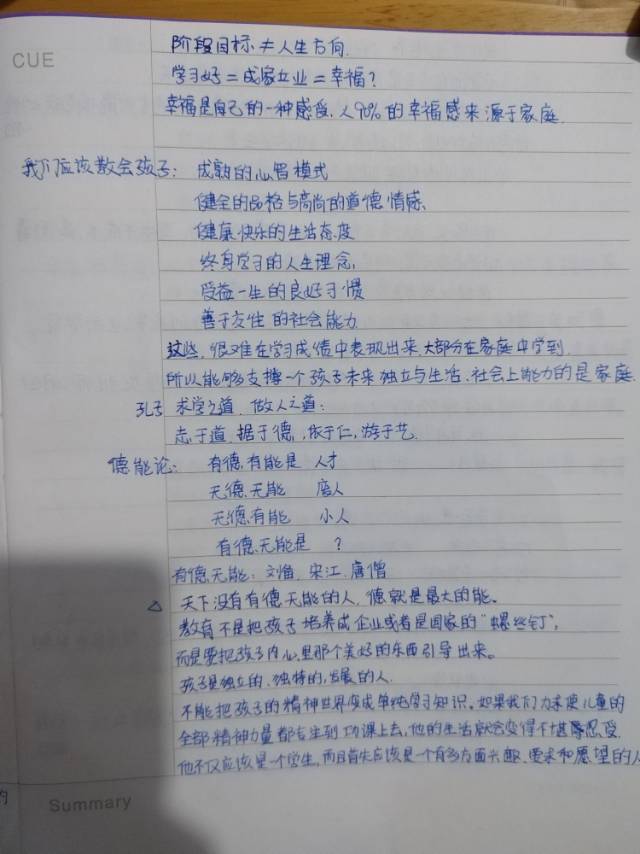 CUE
阶段目标 ≠ 人生方向.
学习好 = 成家立业 = 幸福?
幸福是自己的一种感受,人90%的幸福感来源于家庭.
我们应该教会孩子: 成熟的心智模式
健全的品格与高尚的道德情感、
健康快乐的生活态度
终身学习的人生理念,
受益一生的良好习惯
善于交往的社会能力.
这些,很难在学习成绩中表现出来,大部分在家庭中学到.
所以能够支撑一个孩子未来独立与生活.社会上能力的是家庭.
孔子 求学之道.做人之道:
志于道.据于德,依于仁,游于艺.
德能论: 有德.有能是 人才
无德.无能 废人
无德.有能 小人
有德.无能是 ?
有德.无能: 刘备.宋江.唐僧
△ 天下没有有德无能的人,德就是最大的能。
教育不是把孩子培养成企业或者是国家的“螺丝钉”,
而是要把孩子内心里那个美好的东西引导出来。
孩子是独立的、独特的,发展的人.
不能把孩子的精神世界变成单纯学习知识。如果我们力求使儿童的
全部精神力量都专注到功课上去,他的生活就会变得不堪忍受.
他不仅应该是一个学生,而且首先应该是一个有多方面兴趣、要求和愿望的人
Summary